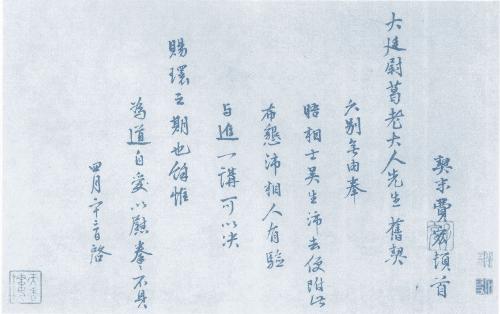 契末費宏頓首
大廷尉葛老大人先生舊契
久別無由奉
晤相士吳生沛去便附此
布懇沛相人有驗
与進一講可以决
賜環之期也餘惟
為道自愛以慰拳〻不具
四月 啓